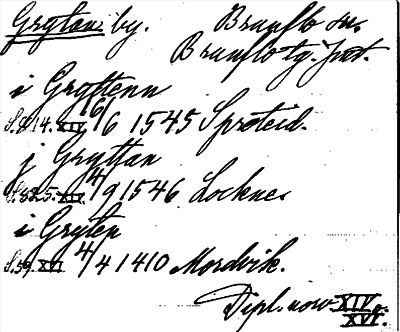 Gryttan by. Brunflo sn.
Brunflo tg. Jmt.
i Gryttenn
S.214. XIV. 16/6 1545 Sproteid.
j Gryttan
S.525. XIV. 4/9 1546 Locknes
i Gryten
S.59. XVI. 4/4 1410 Mordvik.
Dipl. norv XIV o.
XVI.